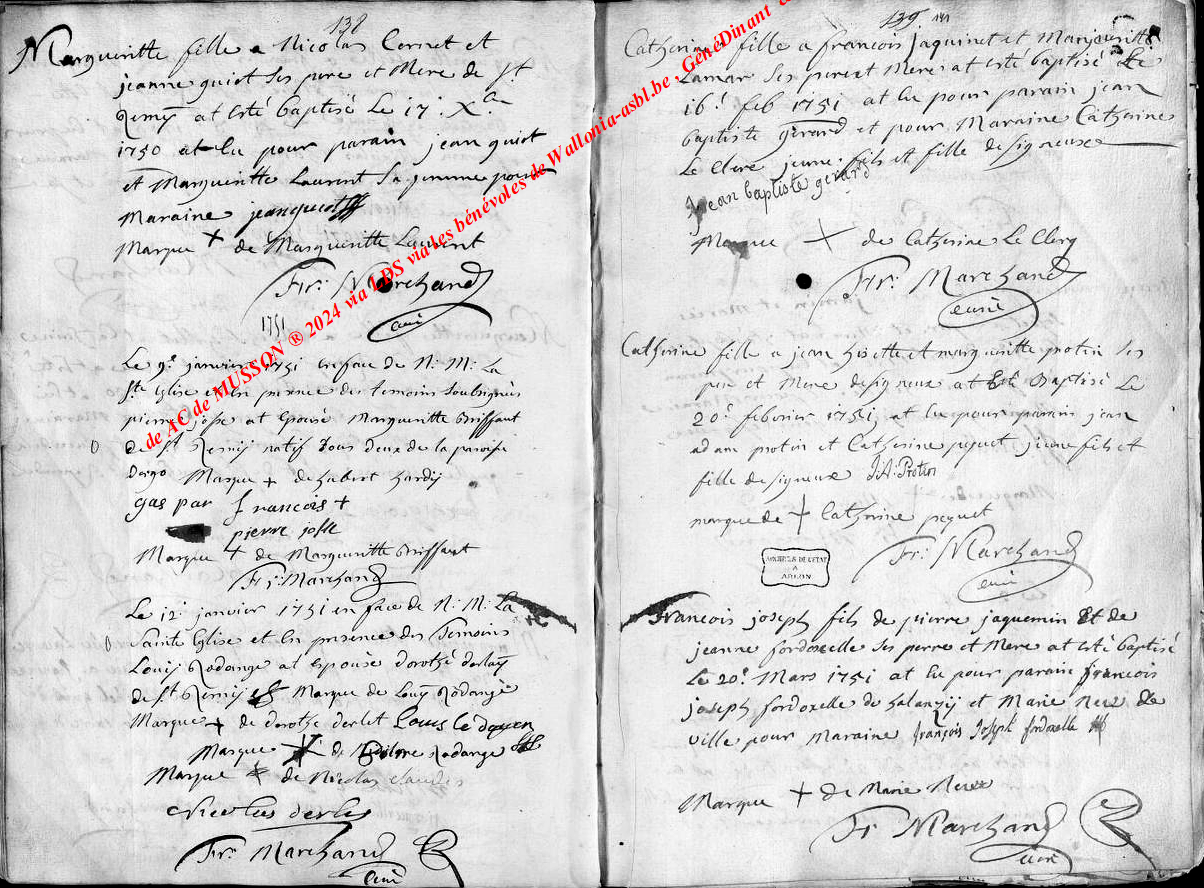 138
Margueritte fille a Nicolas Cornet et
jeanne guiot ses pere et Mere de St
Remÿ at esté baptisé Le 17: Xbre
1750 at eu pour parain jean guiot
et Margueritte Laurent sa femme pour
Maraine jean guiot
Marque + de Margueritte Laurent
Fr: Marchand
curé
1751
Le 9e janvier 1751 en face de N: M: La
Ste Eglise et en presence des temoins soubsignés
pierre josse at epousé Margueritte Briffaut
de St Remÿ natif tous deux de la paroisse
Marque + de hubert hardÿ
gas par francois +
pierre josse
Marque + de Margueritte Briffaut
Fr: Marchand
Le 12e janvier 1751 en face de N: M: La
Sainte Eglise et en presence des Temoins
Louis Rodange at espousé dorothé
de St Remÿ Marque de Louÿ Rodange
Marque + de dorothé derlet Louis le doyen
Marque + de Rodange
Marque + de Nicolas
Fr: Marchand
curé
139 141
Catherine fille a francois jaquinet et Margueritte
Lamar ses pere et Mere at esté baptisé Le
16e feb 1751 at eu pour parain jean
baptiste gerard et pour Maraine Catherine
Le Clere jeune fils et fille de signeux
jean baptiste gerard
Marque + de Catherine Le Clerq
Fr: Marchand
curé
Catherine fille a jean hisette et margueritte protin ses
pere et Mere de signeux at esté Baptisé Le
20e febvrier 1751 at eu pour parain jean
adam protin et Catherine pequet jeune fils et
fille de signeux J:A: Protin
marque de + Catherine pequet
Fr: Marchand
curé
Francois joseph fils de pierre jaquemin Et de
jeanne fordoxelle ses perre et Mere at esté baptisé
Le 20e Mars 1751 at eu pour parain francois
joseph fordoxelle de halanzÿ et Marie de
ville pour Maraine françois Joseph fordoxelle
Marque + de Marie
Fr Marchand
curé
ARCHIVES DE L'ETAT
A
ARLON
de AC de MUSSON ® 2024 via LDS via les bénévoles de Wallonia-asbl.be , GénéDinant